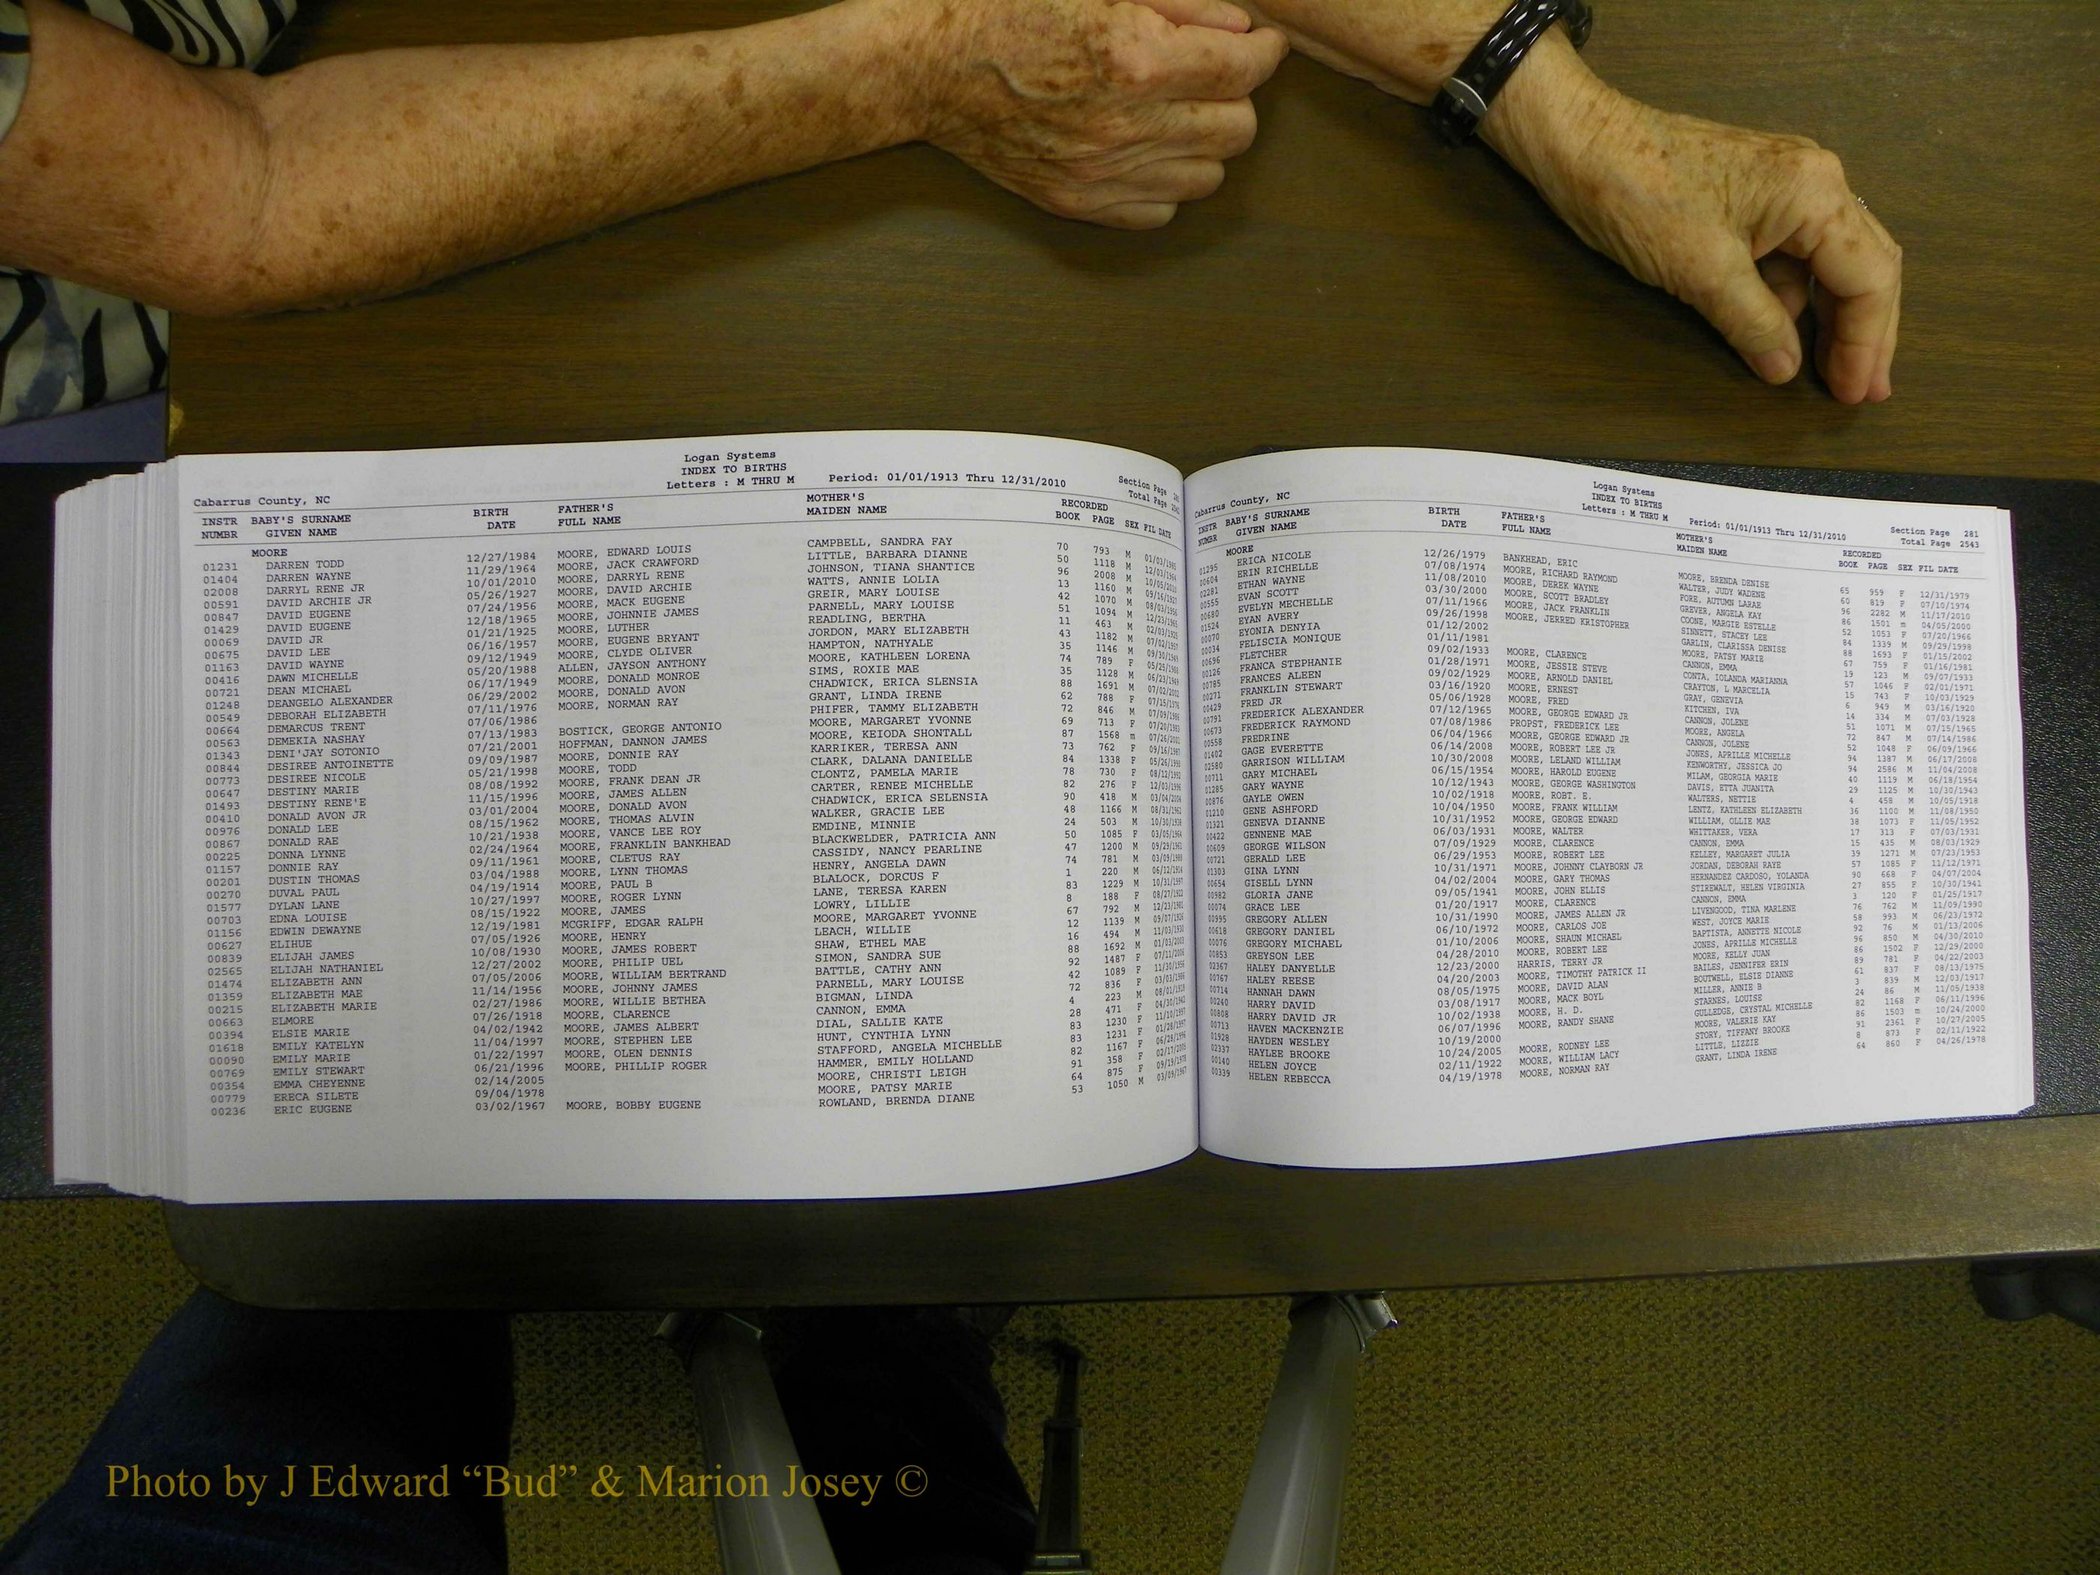 Logan Systems
INDEX TO BIRTHS
Letters : M THRU M Period: 01/01/1913 Thru 12/31/2010
Section Page
Total Page
Cabarrus County, NC
INSTR BABY'S SURNAME BIRTH FATHER'S MOTHER'S RECORDED
NUMBR GIVEN NAME DATE FULL NAME MAIDEN NAME BOOK PAGE SEX FIL DATE
MOORE
01231 DARREN TODD 12/27/1984 MOORE, EDWARD LOUIS CAMPBELL, SANDRA FAY 70 793 M 01/03/1985
01404 DARREN WAYNE 11/29/1964 MOORE, JACK CRAWFORD LITTLE, BARBARA DIANNE 50 1118 M 12/03/1964
02008 DARRYL RENE JR 10/01/2010 MOORE, DARRYL RENE JOHNSON, TIANA SHANTICE 96 2008 M 10/05/2010
00591 DAVID ARCHIE JR 05/26/1927 MOORE, DAVID ARCHIE WATTS, ANNIE LOLIA 13 1160 M 09/16/1927
00847 DAVID EUGENE 07/24/1956 MOORE, MACK EUGENE GREIR, MARY LOUISE 42 1070 M 08/03/1956
01429 DAVID EUGENE 12/18/1965 MOORE, JOHNNIE JAMES PARNELL, MARY LOUISE 51 1094 M 12/23/1965
00069 DAVID JR 01/21/1925 MOORE, LUTHER READLING, BERTHA 11 463 M 02/03/1925
00675 DAVID LEE 06/16/1957 MOORE, EUGENE BRYANT JORDON, MARY ELIZABETH 43 1182 M 07/02/1957
01163 DAVID WAYNE 09/12/1949 MOORE, CLYDE OLIVER HAMPTON, NATHYALE 35 1146 M 09/30/1949
00416 DAWN MICHELLE 05/20/1988 ALLEN, JAYSON ANTHONY MOORE, KATHLEEN LORENA 74 789 F 05/25/1988
00721 DEAN MICHAEL 06/17/1949 MOORE, DONALD MONROE SIMS, ROXIE MAE 35 1128 M 06/23/1949
01248 DEANGELO ALEXANDER 06/29/2002 MOORE, DONALD AVON CHADWICK, ERICA SLENSIA 88 1691 M 07/02/2002
00549 DEBORAH ELIZABETH 07/11/1976 MOORE, NORMAN RAY GRANT, LINDA IRENE 62 788 F 07/15/1976
00664 DEMARCUS TRENT 07/06/1986 PHIFER, TAMMY ELIZABETH 72 846 M 07/09/1986
00563 DEMEKIA NASHAY 07/13/1983 BOSTICK, GEORGE ANTONIO MOORE, MARGARET YVONNE 69 713 F 07/20/1983
01343 DENI'JAY SOTONIO 07/21/2001 HOFFMAN, DANNON JAMES MOORE, KEIODA SHONTALL 87 1568 m 07/26/2001
00844 DESIREE ANTOINETTE 09/09/1987 MOORE, DONNIE RAY KARRIKER, TERESA ANN 73 762 F 09/16/1987
00773 DESIREE NICOLE 05/21/1998 MOORE, TODD CLARK, DALANA DANIELLE 84 1338 F 05/26/1998
00647 DESTINY MARIE 08/08/1992 MOORE, FRANK DEAN JR CLONTZ, PAMELA MARIE 78 730 F 08/12/1992
01493 DESTINY RENE'E 11/15/1996 MOORE, JAMES ALLEN CARTER, RENEE MICHELLE 82 276 F 12/03/1996
00410 DONALD AVON JR 03/01/2004 MOORE, DONALD AVON CHADWICK, ERICA SELENSIA 90 418 M 03/04/2004
00976 DONALD LEE 08/15/1962 MOORE, THOMAS ALVIN WALKER, GRACIE LEE 48 1166 M 08/31/1962
00867 DONALD RAE 10/21/1938 MOORE, VANCE LEE ROY EMDINE, MINNIE 24 503 M 10/30/1938
00225 DONNA LYNNE 02/24/1964 MOORE, FRANKLIN BANKHEAD BLACKWELDER, PATRICIA ANN 50 1085 F 03/05/1964
01157 DONNIE RAY 09/11/1961 MOORE, CLETUS RAY CASSIDY, NANCY PEARLINE 47 1200 M 09/29/1961
00201 DUSTIN THOMAS 03/04/1988 MOORE, LYNN THOMAS HENRY, ANGELA DAWN 74 781 M 03/09/1988
00270 DUVAL PAUL 04/19/1914 MOORE, PAUL B BLALOCK, DORCUS F 1 220 M 06/12/1914
01577 DYLAN LANE 10/27/1997 MOORE, ROGER LYNN LANE, TERESA KAREN 83 1229 M 10/31/1997
00703 EDNA LOUISE 08/15/1922 MOORE, JAMES LOWRY, LILLIE 8 188 F 08/27/1922
01156 EDWIN DEWAYNE 12/19/1981 MCGRIFF, EDGAR RALPH MOORE, MARGARET YVONNE 67 792 M 12/23/1981
00627 ELIHUE 07/05/1926 MOORE, HENRY LEACH, WILLIE 12 1139 M 09/07/1926
00839 ELIJAH JAMES 10/08/1930 MOORE, JAMES ROBERT SHAW, ETHEL MAE 16 494 M 11/03/1930
02565 ELIJAH NATHANIEL 12/27/2002 MOORE, PHILIP UEL SIMON, SANDRA SUE 88 1692 M 01/03/2003
01474 ELIZABETH ANN 07/05/2006 MOORE, WILLIAM BERTRAND BATTLE, CATHY ANN 92 1487 F 07/11/2006
01359 ELIZABETH MAE 11/14/1956 MOORE, JOHNNY JAMES PARNELL, MARY LOUISE 42 1089 F 11/30/1956
00215 ELIZABETH MARIE 02/27/1986 MOORE, WILLIE BETHEA BIGMAN, LINDA 72 836 F 03/03/1986
00663 ELMORE 07/26/1918 MOORE, CLARENCE CANNON, EMMA 4 223 M 08/01/1918
00394 ELSIE MARIE 04/02/1942 MOORE, JAMES ALBERT DIAL, SALLIE KATE 28 471 F 04/30/1942
01618 EMILY KATELYN 11/04/1997 MOORE, STEPHEN LEE HUNT, CYNTHIA LYNN 83 1230 F 11/10/1997
00090 EMILY MARIE 01/22/1997 MOORE, OLEN DENNIS STAFFORD, ANGELA MICHELLE 83 1231 F 01/28/1997
00769 EMILY STEWART 06/21/1996 MOORE, PHILLIP ROGER HAMMER, EMILY HOLLAND 82 1167 F 06/28/1996
00354 EMMA CHEYENNE 02/14/2005 MOORE, CHRISTI LEIGH 91 358 F 02/17/2005
00779 ERECA SILETE 09/04/1978 MOORE, PATSY MARIE 64 875 F 09/19/1978
00236 ERIC EUGENE 03/02/1967 MOORE, BOBBY EUGENE ROWLAND, BRENDA DIANE 53 1050 M 03/09/1967
Logan Systems
INDEX TO BIRTHS
Letters : M THRU M Period: 01/01/1913 Thru 12/31/2010
Section Page 281
Total Page 2543
Cabarrus County, NC
INSTR BABY'S SURNAME BIRTH FATHER'S MOTHER'S RECORDED
NUMBR GIVEN NAME DATE FULL NAME MAIDEN NAME BOOK PAGE SEX FIL DATE
MOORE
01295 ERICA NICOLE 12/26/1979 BANKHEAD, ERIC MOORE, BRENDA DENISE 65 959 F 12/31/1979
00604 ERIN RICHELLE 07/08/1974 MOORE, RICHARD RAYMOND WALTER, JUDY WADENE 60 819 F 07/10/1974
02281 ETHAN WAYNE 11/08/2010 MOORE, DEREK WAYNE FORE, AUTUMN LARAE 96 2282 M 11/17/2010
00555 EVAN SCOTT 03/30/2000 MOORE, SCOTT BRADLEY GREVER, ANGELA KAY 86 1501 m 04/05/2000
00680 EVELYN MECHELLE 07/11/1966 MOORE, JACK FRANKLIN COONE, MARGIE ESTELLE 52 1053 F 07/20/1966
01524 EYAN AVERY 09/26/1998 MOORE, JERRED KRISTOPHER SINNETT, STACEY LEE 84 1339 M 09/29/1998
00070 EYONIA DENYIA 01/12/2002 GARLIN, CLARISSA DENISE 88 1693 F 01/15/2002
00034 FELISCIA MONIQUE 01/11/1981 MOORE, PATSY MARIE 67 759 F 01/16/1981
00696 FLETCHER 09/02/1933 MOORE, CLARENCE CANNON, EMMA 19 123 M 09/07/1933
00126 FRANCA STEPHANIE 01/28/1971 MOORE, JESSIE STEVE CONTA, IOLANDA MARIANNA 57 1046 F 02/01/1971
00785 FRANCES ALEEN 09/02/1929 MOORE, ARNOLD DANIEL CRAYTON, L MARCELIA 15 743 F 10/03/1929
00271 FRANKLIN STEWART 03/16/1920 MOORE, ERNEST GRAY, GENEVIA 6 949 M 03/16/1920
00429 FRED JR 05/06/1928 MOORE, FRED KITCHEN, IVA 14 334 M 07/03/1928
00791 FREDERICK ALEXANDER 07/12/1965 MOORE, GEORGE EDWARD JR CANNON, JOLENE 51 1071 M 07/15/1965
00673 FREDERICK RAYMOND 07/08/1986 PROPST, FREDERICK LEE MOORE, ANGELA 72 847 M 07/14/1986
00558 FREDRINE 06/04/1966 MOORE, GEORGE EDWARD JR CANNON, JOLENE 52 1048 F 06/09/1966
01402 GAGE EVERETTE 06/14/2008 MOORE, ROBERT LEE JR JONES, APRILLE MICHELLE 94 1387 M 06/17/2008
02580 GARRISON WILLIAM 10/30/2008 MOORE, LELAND WILLIAM KENWORTHY, JESSICA JO 94 2586 M 11/04/2008
00711 GARY MICHAEL 06/15/1954 MOORE, HAROLD EUGENE MILAM, GEORGIA MARIE 40 1119 M 06/18/1954
01285 GARY WAYNE 10/12/1943 MOORE, GEORGE WASHINGTON DAVIS, ETTA JUANITA 29 1125 M 10/30/1943
00876 GAYLE OWEN 10/02/1918 MOORE, ROBT. E. WALTERS, NETTIE 4 458 M 10/05/1918
01210 GENE ASHFORD 10/04/1950 MOORE, FRANK WILLIAM LENTZ, KATHLEEN ELIZABETH 36 1100 M 11/08/1950
01321 GENEVA DIANNE 10/31/1952 MOORE, GEORGE EDWARD WILLIAM, OLLIE MAE 38 1073 F 11/05/1952
00422 GENNENE MAE 06/03/1931 MOORE, WALTER WHITTAKER, VERA 17 313 F 07/03/1931
00609 GEORGE WILSON 07/09/1929 MOORE, CLARENCE CANNON, EMMA 15 435 M 08/03/1929
00721 GERALD LEE 06/29/1953 MOORE, ROBERT LEE KELLEY, MARGARET JULIA 39 1271 M 07/23/1953
01303 GINA LYNN 10/31/1971 MOORE, JOHNNY CLAYBORN JR JORDAN, DEBORAH RAYE 57 1085 F 11/12/1971
00654 GISELL LYNN 04/02/2004 MOORE, GARY THOMAS HERNANDEZ CARDOSO, YOLANDA 90 668 F 04/07/2004
00982 GLORIA JANE 09/05/1941 MOORE, JOHN ELLIS STIREWALT, HELEN VIRGINIA 27 855 F 10/30/1941
00074 GRACE LEE 01/20/1917 MOORE, CLARENCE CANNON, EMMA 3 120 F 01/25/1917
00995 GREGORY ALLEN 10/31/1990 MOORE, JAMES ALLEN JR LIVENGOOD, TINA MARLENE 76 762 M 11/09/1990
00618 GREGORY DANIEL 06/10/1972 MOORE, CARLOS JOE WEST, JOYCE MARIE 58 993 M 06/23/1972
00076 GREGORY MICHAEL 01/10/2006 MOORE, SHAUN MICHAEL BAPTISTA, ANNETTE NICOLE 92 76 M 01/13/2006
00853 GREYSON LEE 04/28/2010 MOORE, ROBERT LEE JONES, APRILLE MICHELLE 96 850 M 04/30/2010
02367 HALEY DANYELLE 12/23/2000 HARRIS, TERRY JR MOORE, KELLY JUAN 86 1502 F 12/29/2000
00767 HALEY REESE 04/20/2003 MOORE, TIMOTHY PATRICK II BAILES, JENNIFER ERIN 89 781 F 04/22/2003
00714 HANNAH DAWN 08/05/1975 MOORE, DAVID ALAN BOUTWELL, ELSIE DIANNE 61 837 F 08/13/1975
00240 HARRY DAVID 03/08/1917 MOORE, MACK BOYL MILLER, ANNIE B 3 839 M 12/03/1917
00808 HARRY DAVID JR 10/02/1938 MOORE, H. D. STARNES, LOUISE 24 86 M 11/05/1938
00713 HAVEN MACKENZIE 06/07/1996 MOORE, RANDY SHANE GULLEDGE, CRYSTAL MICHELLE 82 1168 F 06/11/1996
01928 HAYDEN WESLEY 10/19/2000 MOORE, VALERIE KAY 86 1503 m 10/24/2000
02337 HAYLEE BROOKE 10/24/2005 MOORE, RODNEY LEE STORY, TIFFANY BROOKE 91 2361 F 10/27/2005
00140 HELEN JOYCE 02/11/1922 MOORE, WILLIAM LACY LITTLE, LIZZIE 8 873 F 02/11/1922
00339 HELEN REBECCA 04/19/1978 MOORE, NORMAN RAY GRANT, LINDA IRENE 64 860 F 04/26/1978
Photo by J Edward “Bud” & Marion Josey ©